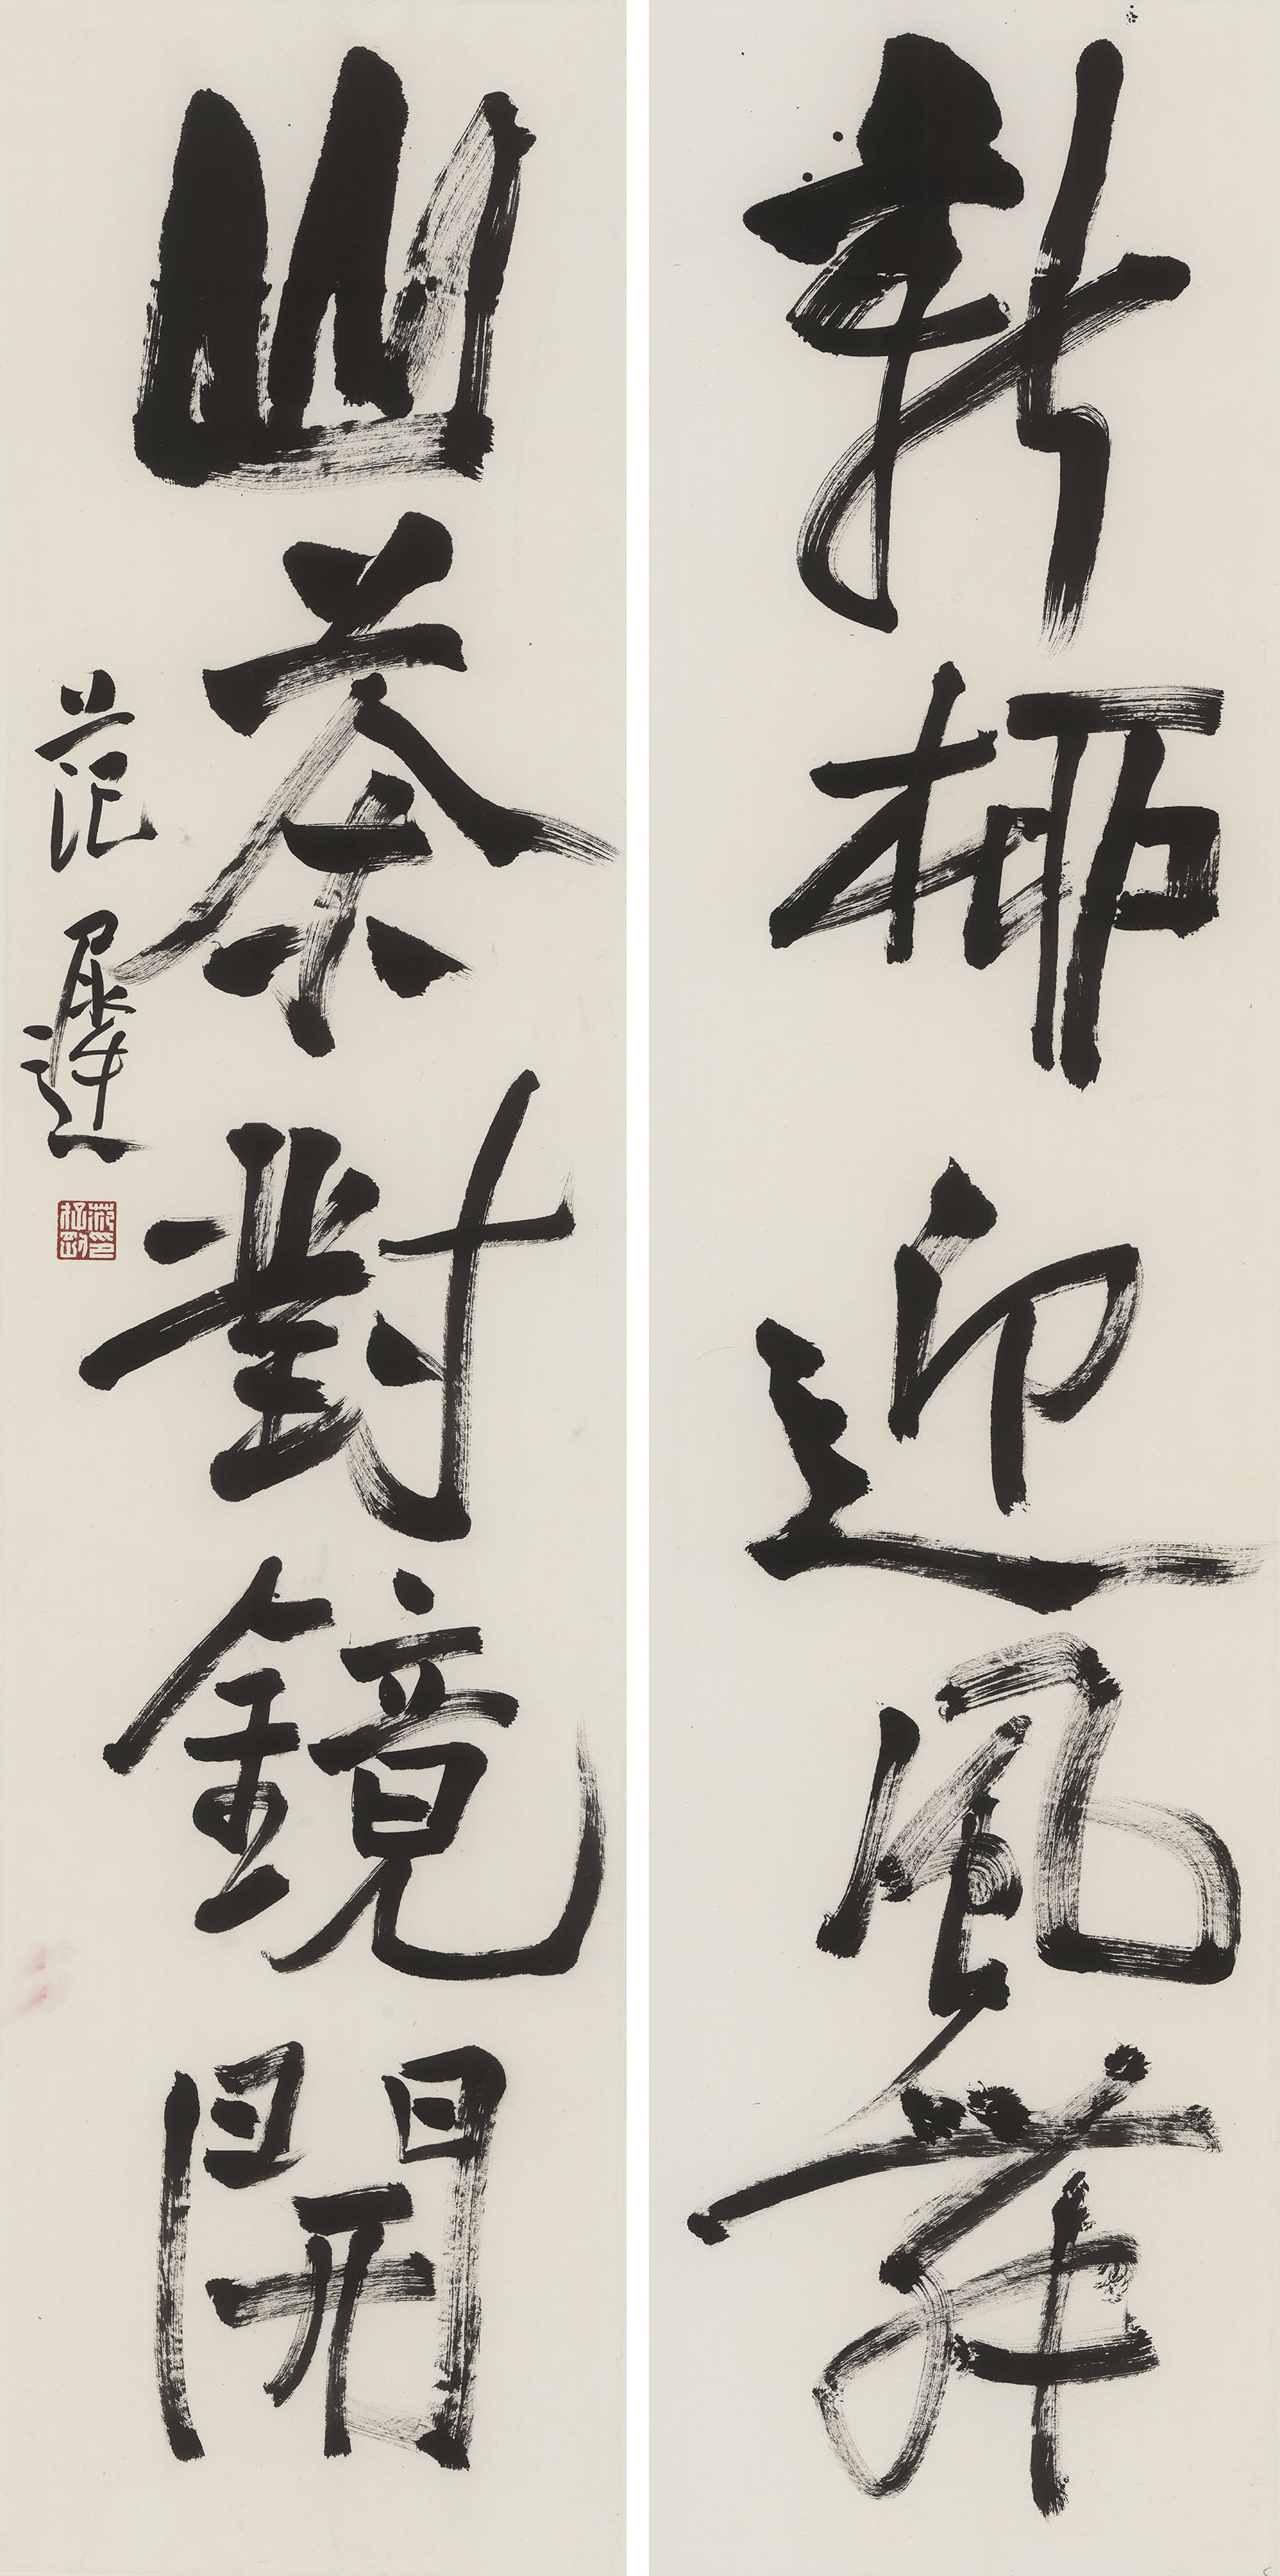 新柳迎風舞
山茶對鏡開
范遲